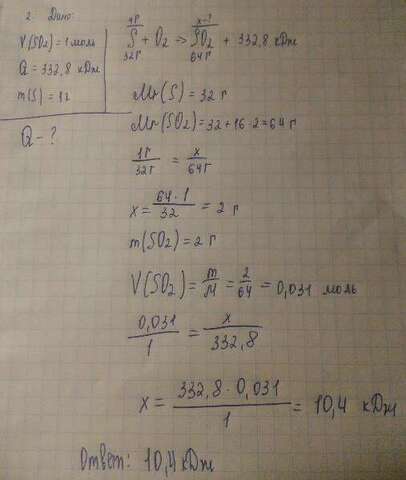 2 Дано:
V(SO₂) = 1 моль
Q = 332,8 кДж
m(S) = 1г
Q - ?
1г x - ?
S + O₂ → SO₂ + 332,8 кДж
32г 64г
Mr(S) = 32 г
Mr(SO₂) = 32 + 16 · 2 = 64 г
1г/32г = x/64г
x = 64 · 1/32 = 2 г
m(SO₂) = 2 г
V(SO₂) = m/M = 2/64 = 0,031 моль
0,031/1 = x/332,8
x = 332,8 · 0,031/1 = 10,4 кДж
Ответ: 10,4 кДж